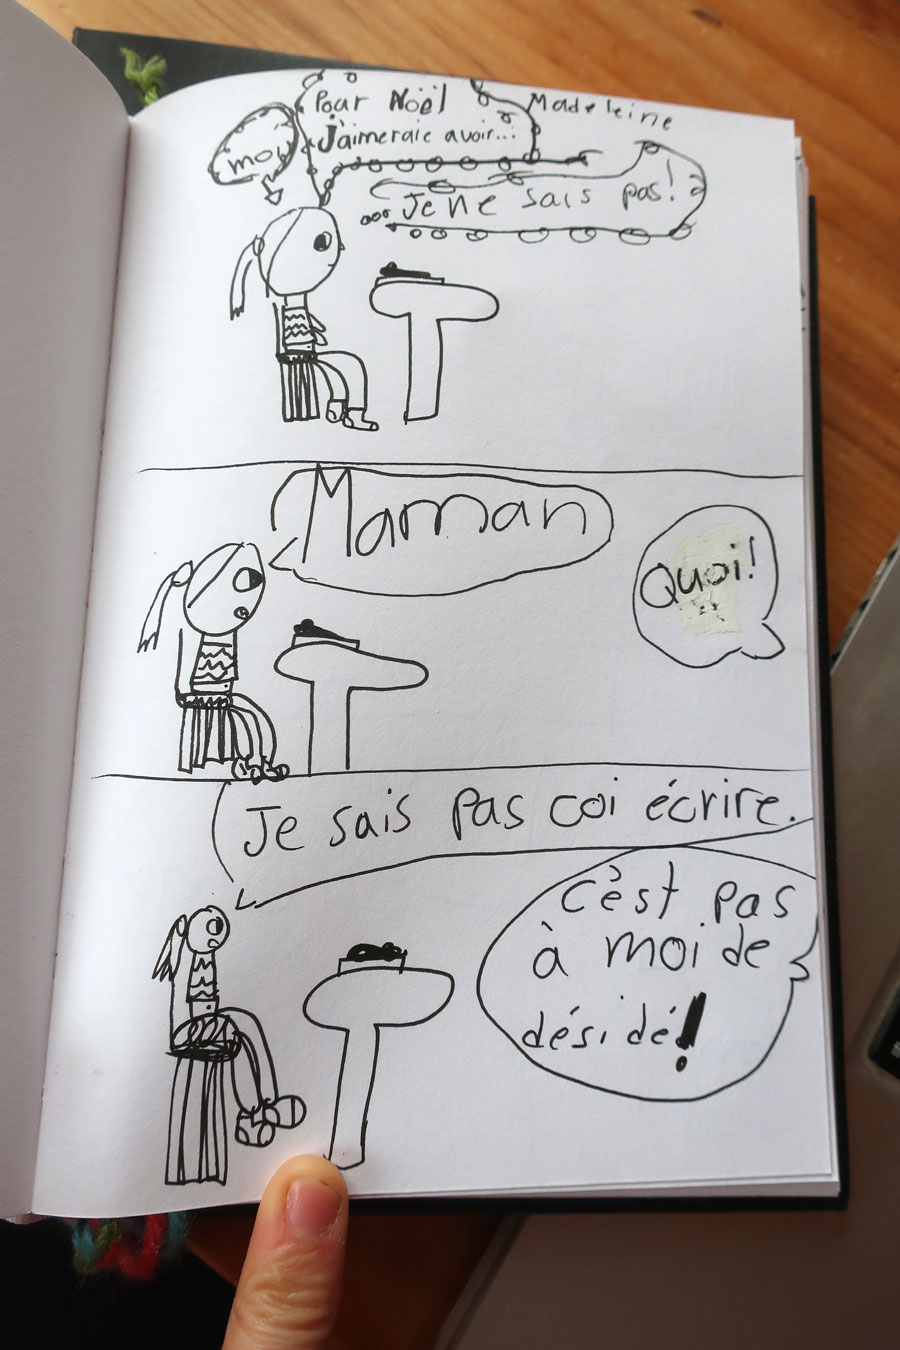 Pour Noël
Madeleine
J'aimeraie avoir...
moi
Je ne sais pas!
Maman
Quoi!
Je sais pas coi écrire.
c'èst pas
à moi de
désidé!